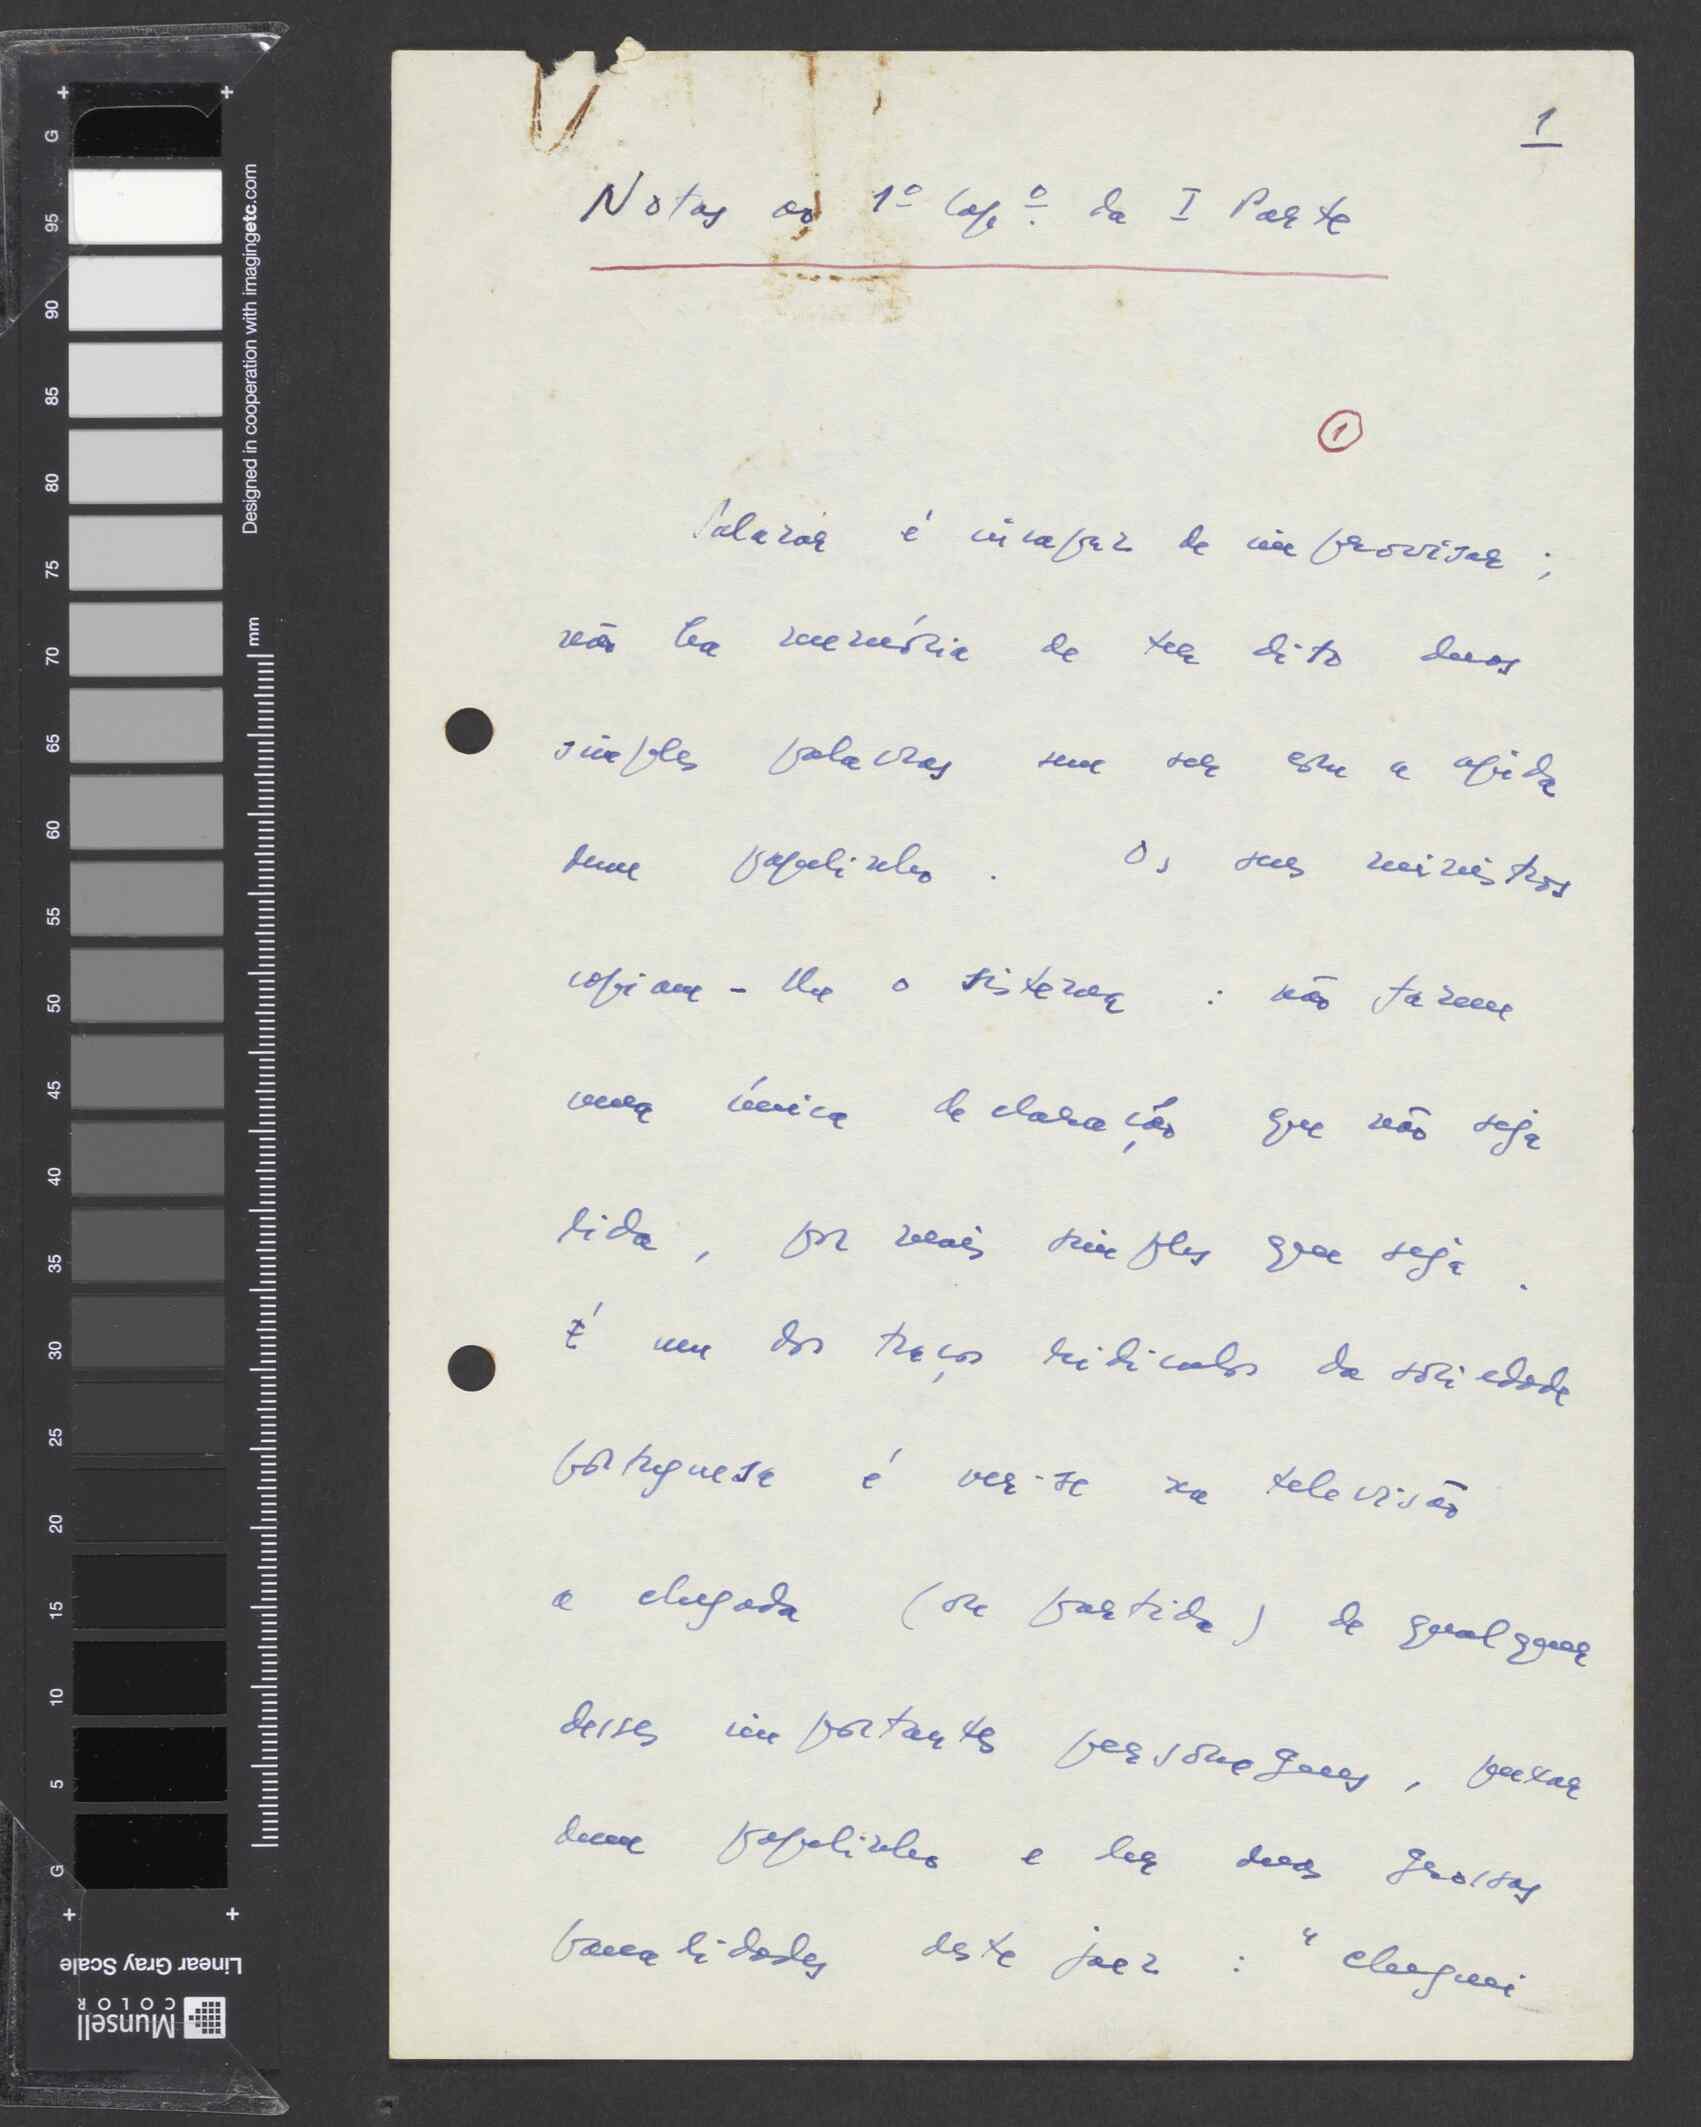 1
Notas ao 1º Cap.º da I Parte
1
Salazar é incapaz de improvisar ;
não há memória de ter dito duas
simples palavras sem ser com a ajuda
dum papelinho . Os seus ministros
copiam-lhe o sistema : não fazem
uma única declaração que não seja
lida , por mais simples que seja .
É um dos traços ridículos da sociedade
portuguesa é ver-se na televisão
a chegada (ou partida) de qualquer
desses importantes personagens , puxar
dum papelinho e ler duas grossas
banalidades deste jaez : " cheguei
G
95
90
85
80
75
70
65
60
55
50
45
40
35
30
25
20
15
10
5
G
Designed in cooperation with imagingetc.com
mm
Linear Gray Scale
Munsell
COLOR